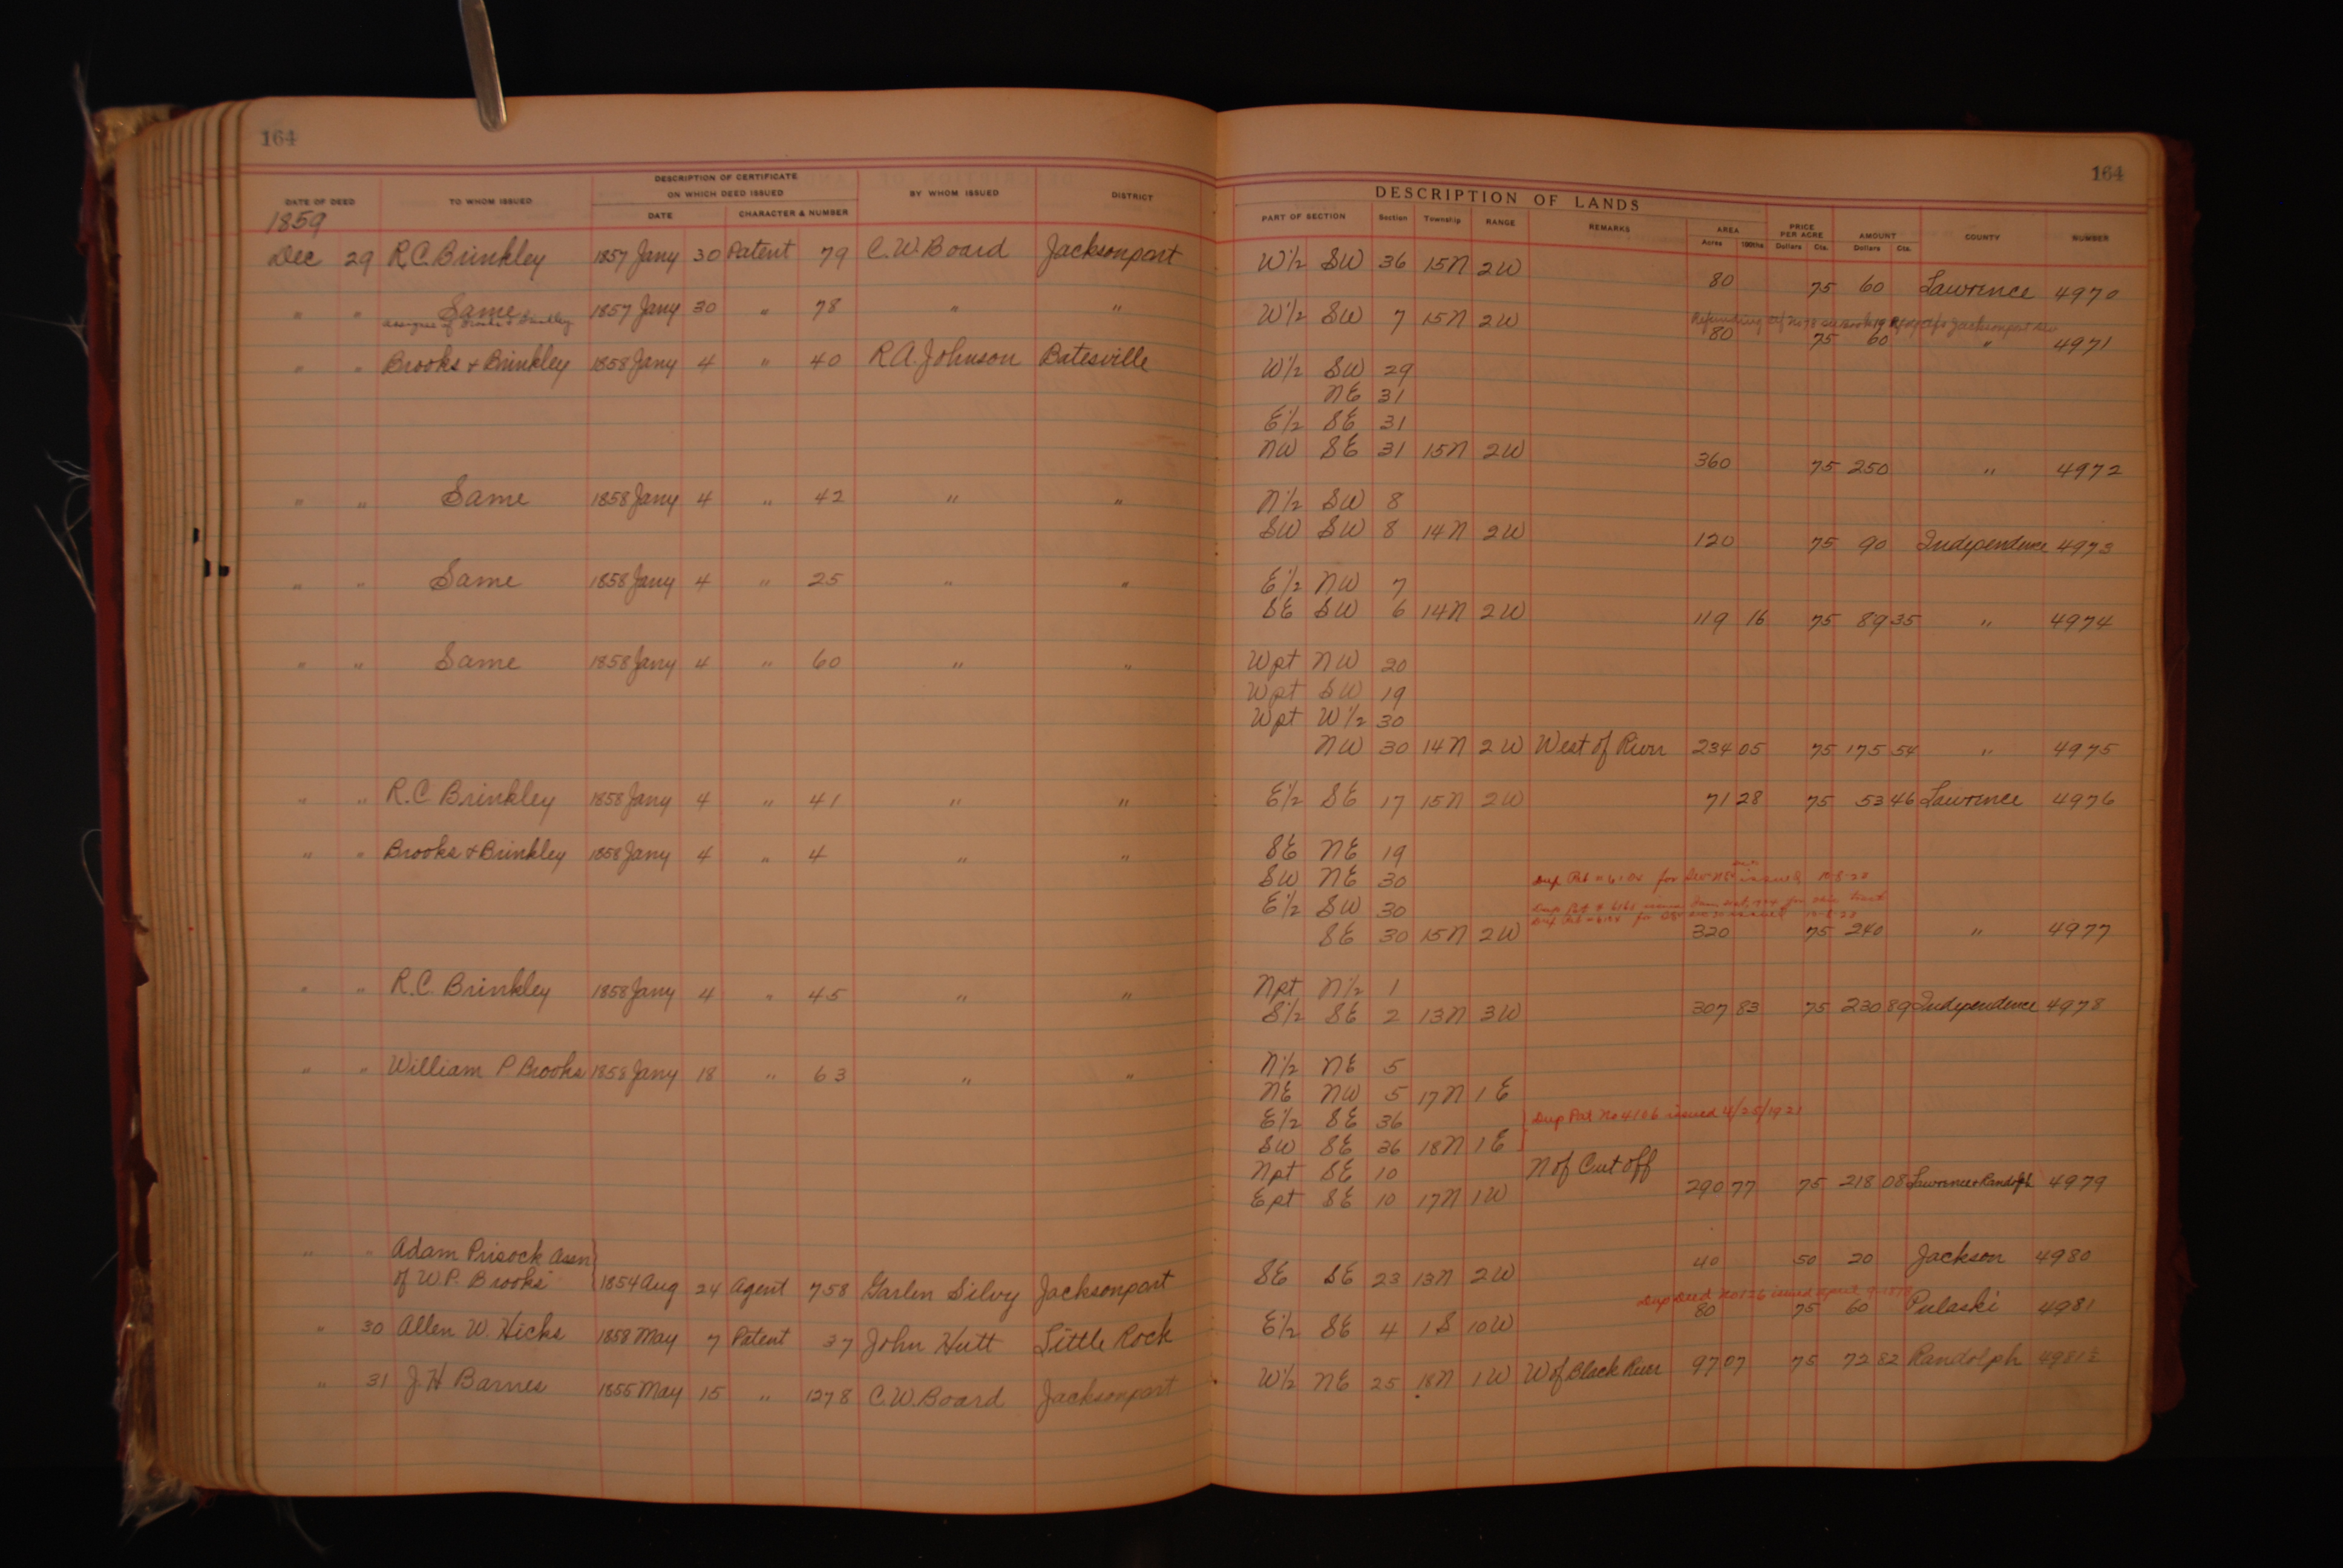 164
164
DESCRIPTION OF CERTIFICATE
ON WHICH DEED ISSUED
DATE OF DEED TO WHOM ISSUED DATE CHARACTER & NUMBER BY WHOM ISSUED DISTRICT
DESCRIPTION OF LANDS
PART OF SECTION Section Township RANGE REMARKS AREA Acres 100ths PRICE PER ACRE Dollars Cts. AMOUNT Dollars Cts. COUNTY NUMBER
1859
Dec 29 R.C. Brinkley 1857 Jany 30 Patent 79 C.W. Board Jacksonport W½ SW 36 15N 2W 80 75 60 Lawrence 4970
" " Same 1857 Jany 30 " 78 " " W½ SW 7 15N 2W 80 75 60 " 4971
assignee of Brooks & Brinkley
Refunding
Brooks + Brinkley 1858 Jany 4 " 40 R.A. Johnson Batesville W½ SW 29
NE 31
E½ SE 31
NW SE 31 15N 2W 360 75 250 " 4972
" " Same 1858 Jany 4 " 42 " " N½ SW 8
SW SW 8 14N 2W 120 75 90 Independence 4973
" " Same 1858 Jany 4 " 25 " " E½ NW 7
SE SW 6 14N 2W 119 16 75 89 35 " 4974
" " Same 1858 Jany 4 " 60 " " Wpt NW 20
Wpt SW 19
Wpt W½ 30
NW 30 14N 2W West of River 234 05 75 175 54 " 4975
" " R.C. Brinkley 1858 Jany 4 " 41 " " E½ SE 17 15N 2W 71 28 75 53 46 Lawrence 4976
" " Brooks + Brinkley 1858 Jany 4 " 4 " " SE NE 19
SW NE 30 Dup Pat for issued
E½ SW 30 Dup Pat
SE 30 15N 2W 320 75 240 " 4977
" " R.C. Brinkley 1858 Jany 4 " 45 " " Npt N½ 1
S½ SE 2 13N 3W 307 83 75 230 89 Independence 4978
" " William P Brooks 1858 Jany 18 " 63 " " N½ NE 5
NE NW 5 17N 1E
E½ SE 36 Dup Pat No 4106 issued 4/25/1921
SW SE 36 18N 1E
Npt SE 10 N of Cut off
Ept SE 10 17N 1W 290 77 75 218 08 Lawrence + Randolph 4979
" " Adam Prisock Assn
of W.P. Brooks 1854 Aug 24 Agent 758 Garlen Silvy Jacksonport SE SE 23 13N 2W 40 50 20 Jackson 4980
Dup Deed issued April
" 30 Allen W. Hicks 1858 May 7 Patent 37 John Hutt Little Rock E½ SE 4 1S 10W 80 75 60 Pulaski 4981
" 31 J H Barnes 1855 May 15 " 1278 C.W. Board Jacksonport W½ NE 25 18N 1W W of Black River 97 07 75 72 82 Randolph 4981½